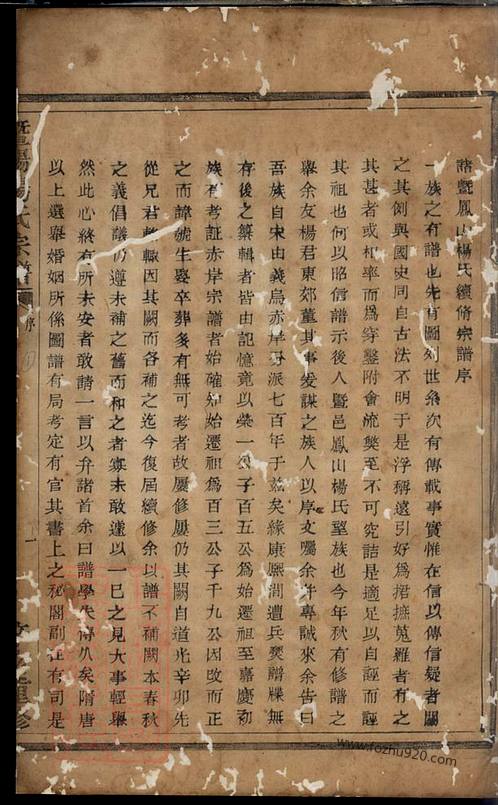 諸暨鳳山楊氏續脩宗譜序
一族之有譜也先有圖列世系次有傳載事實惟在信以傳信疑者闕
之其例與國史同自古法不明于是浮稱遠引好為捃摭蒐羅者有之
其甚者或相率而為穿鑿附會流獘至不可究詰是適足以自誣而誣
其祖也何以昭信譜示後人暨邑鳳山楊氏望族也今年秋有修譜之
舉余友楊君東郊董其事爰謀之族人以序文囑余并專誠來余告曰
吾族自宋由義烏赤岸分派七百年于茲矣緣康熙間遭兵燹譜牒無
存後之纂輯者皆由記憶竟以榮一公子百五公為始遷祖至嘉慶初
族有考証赤岸宗譜者始確知始遷祖為百三公子千九公因改而正
之而諱號生娶卒葬多有無可考者故屢修屢仍其闕自道光辛卯先
從兄君 輙因其闕而各補之迄今復屆續修余以譜不補闕本春秋
之義倡議仍遵未補之舊而和之者寡未敢遽以一己之見大事輕舉
然此心終有所未安者敢請一言以弁諸首余曰譜學失傳久矣隋唐
以上選舉婚姻所係圖譜有局考定有官其書上之秘閣副在有司是
暨陽楊氏宗譜 序 一 重修
www.fozhu920.com